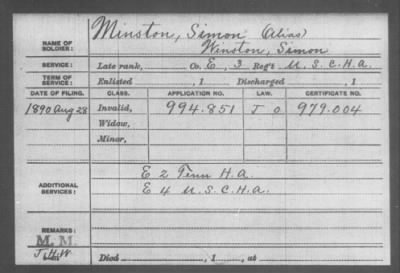 NAME OF SOLDIER: Minston, Simon (Alias)
Winston, Simon
SERVICE: Late rank, Co. E, 3 Reg't U.S.C.H.A.
TERM OF SERVICE: Enlisted , 1 Discharged , 1
DATE OF FILING. CLASS. APPLICATION NO. LAW. CERTIFICATE NO.
1890 Aug 28 Invalid, 994.851 J O 979.004
Widow,
Minor,
ADDITIONAL SERVICES: E 2 Tenn H.A.
E 4 U.S.C.H.A.
REMARKS:
M. M.
J.H.W. Died , 1 , at